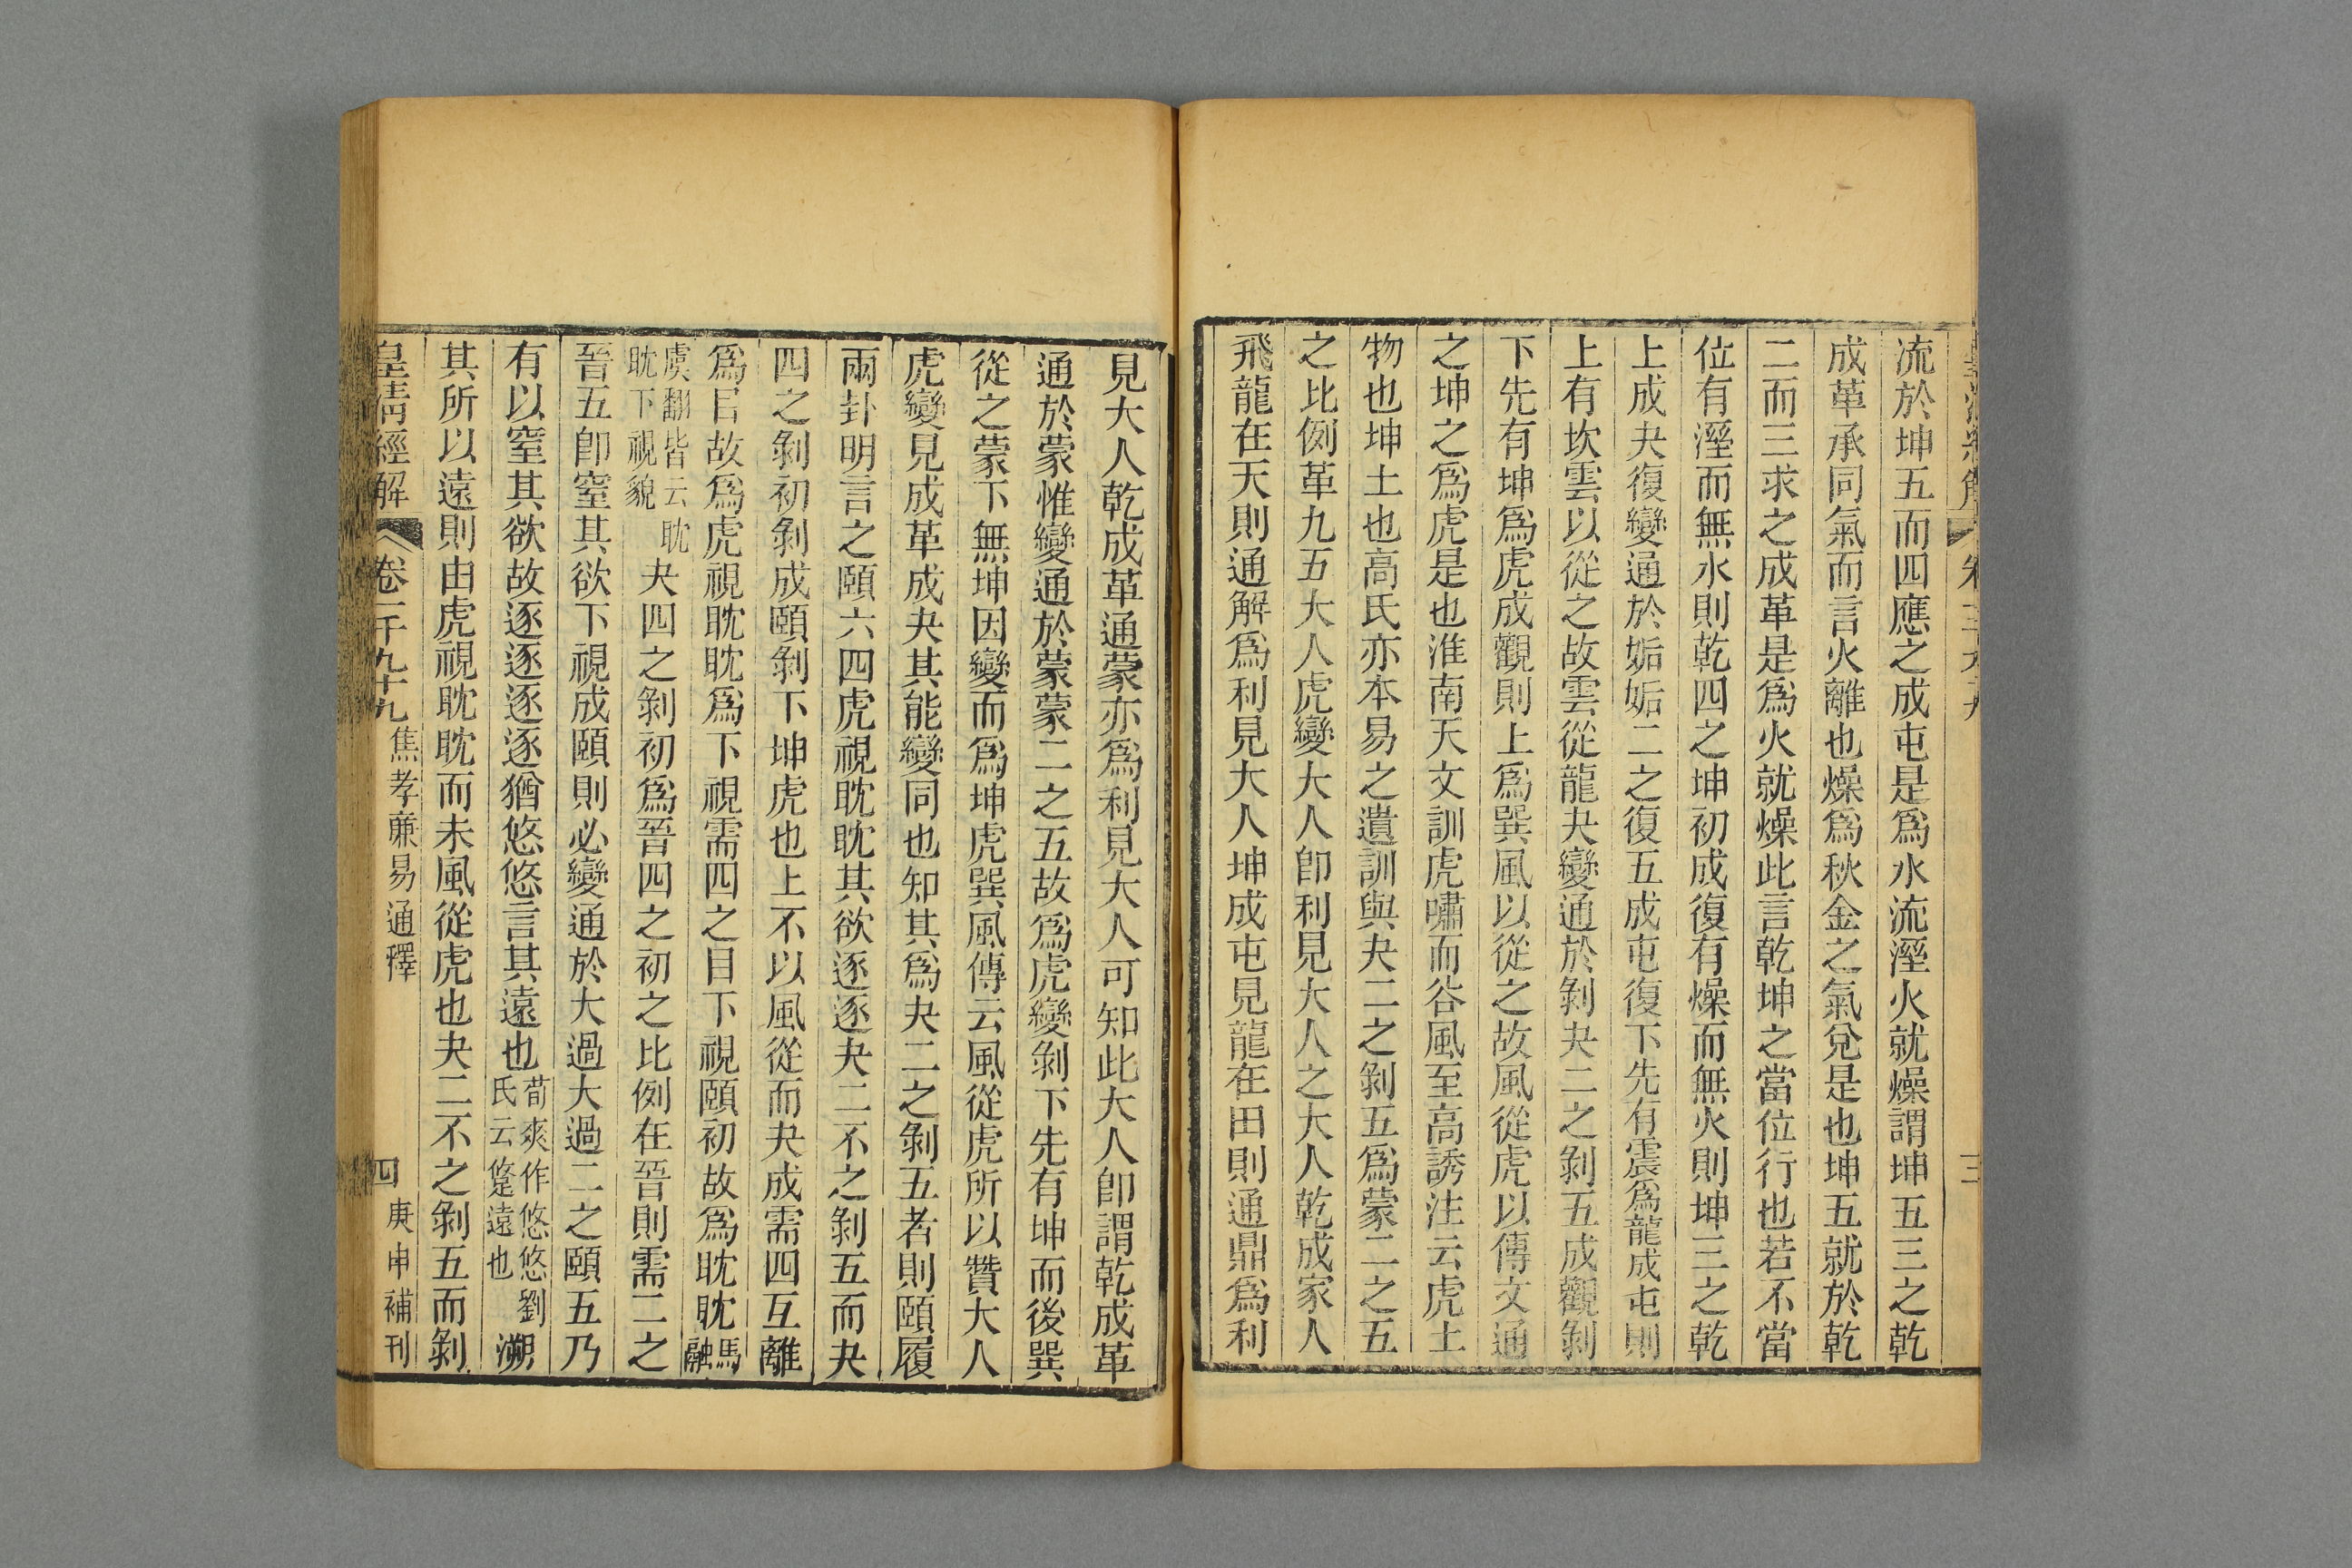 流於坤五而四應之成屯是爲水流溼火就燥謂坤五三之乾
成革承同氣而言火離也燥爲秋金之氣兌是也坤五就於乾
二而三求之成革是爲火就燥此言乾坤之當位行也若不當
位有溼而無水則乾四之坤初成復有燥而無火則坤三之乾
上成夬復變通於姤姤二之復五成屯復下先有震爲龍成屯則
上有坎雲以從之故雲從龍夬變通於剝夬二之剝五成觀剝
下先有坤爲虎成觀則上爲巽風以從之故風從虎以傳文通
之坤之爲虎是也淮南天文訓虎嘯而谷風至高誘注云虎土
物也坤土也高氏亦本易之遺訓與夬二之剝五爲蒙二之五
之比例革九五大人虎變大人卽利見大人之大人乾成家人
飛龍在天則通解爲利見大人坤成屯見龍在田則通鼎爲利
見大人乾成革通蒙亦爲利見大人可知此大人卽謂乾成革
通於蒙惟變通於蒙蒙二之五故爲虎變剝下先有坤而後巽
從之蒙下無坤因變而爲坤虎巽風傳云風從虎所以贊大人
虎變見成革成夬其能變同也知其爲夬二之剝五者則頤履
兩卦明言之頤六四虎視眈眈其欲逐逐夬二不之剝五而夬
四之剝初剝成頤剝下坤虎也上不以風從而夬成需四互離
爲目故爲虎視眈眈爲下視需四之目下視頤初故爲眈眈馬融
虞翻皆云眈眈下視貌夬四之剝初爲晉四之初之比例在晉則需二之
晉五卽窒其欲下視成頤則必變通於大過大過二之頤五乃
有以窒其欲故逐逐逐逐猶悠悠言其遠也荀爽作悠悠劉氏云跾遠也溯
其所以遠則由虎視眈眈而未風從虎也夬二不之剝五而剝
皇淸經解 卷一千九十九 焦孝廉易通釋 四 庚申補刊